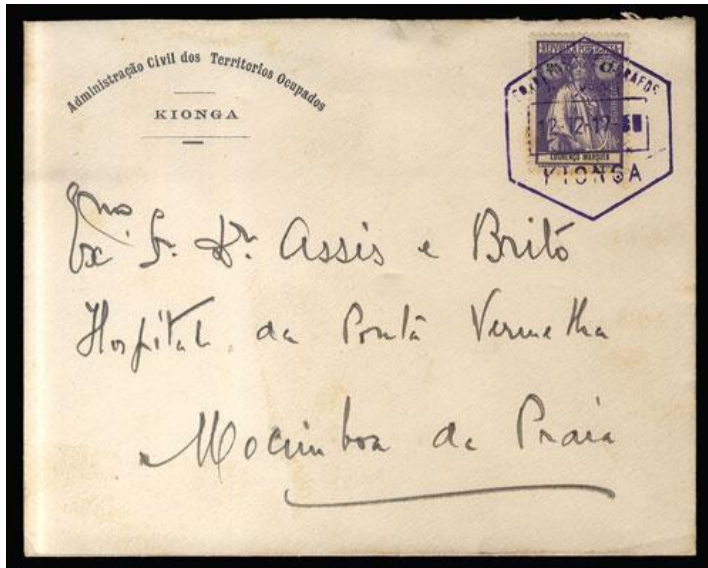 Administração Civil dos Territorios Ocupados
KIONGA
REPUBLICA PORTUGUESA
C.
LOURENÇO MARQUES
12-12-17
KIONGA
Exmo Sr. Dr. Assis e Brito
Hospital da Ponta Vermelha
Mocimboa da Praia